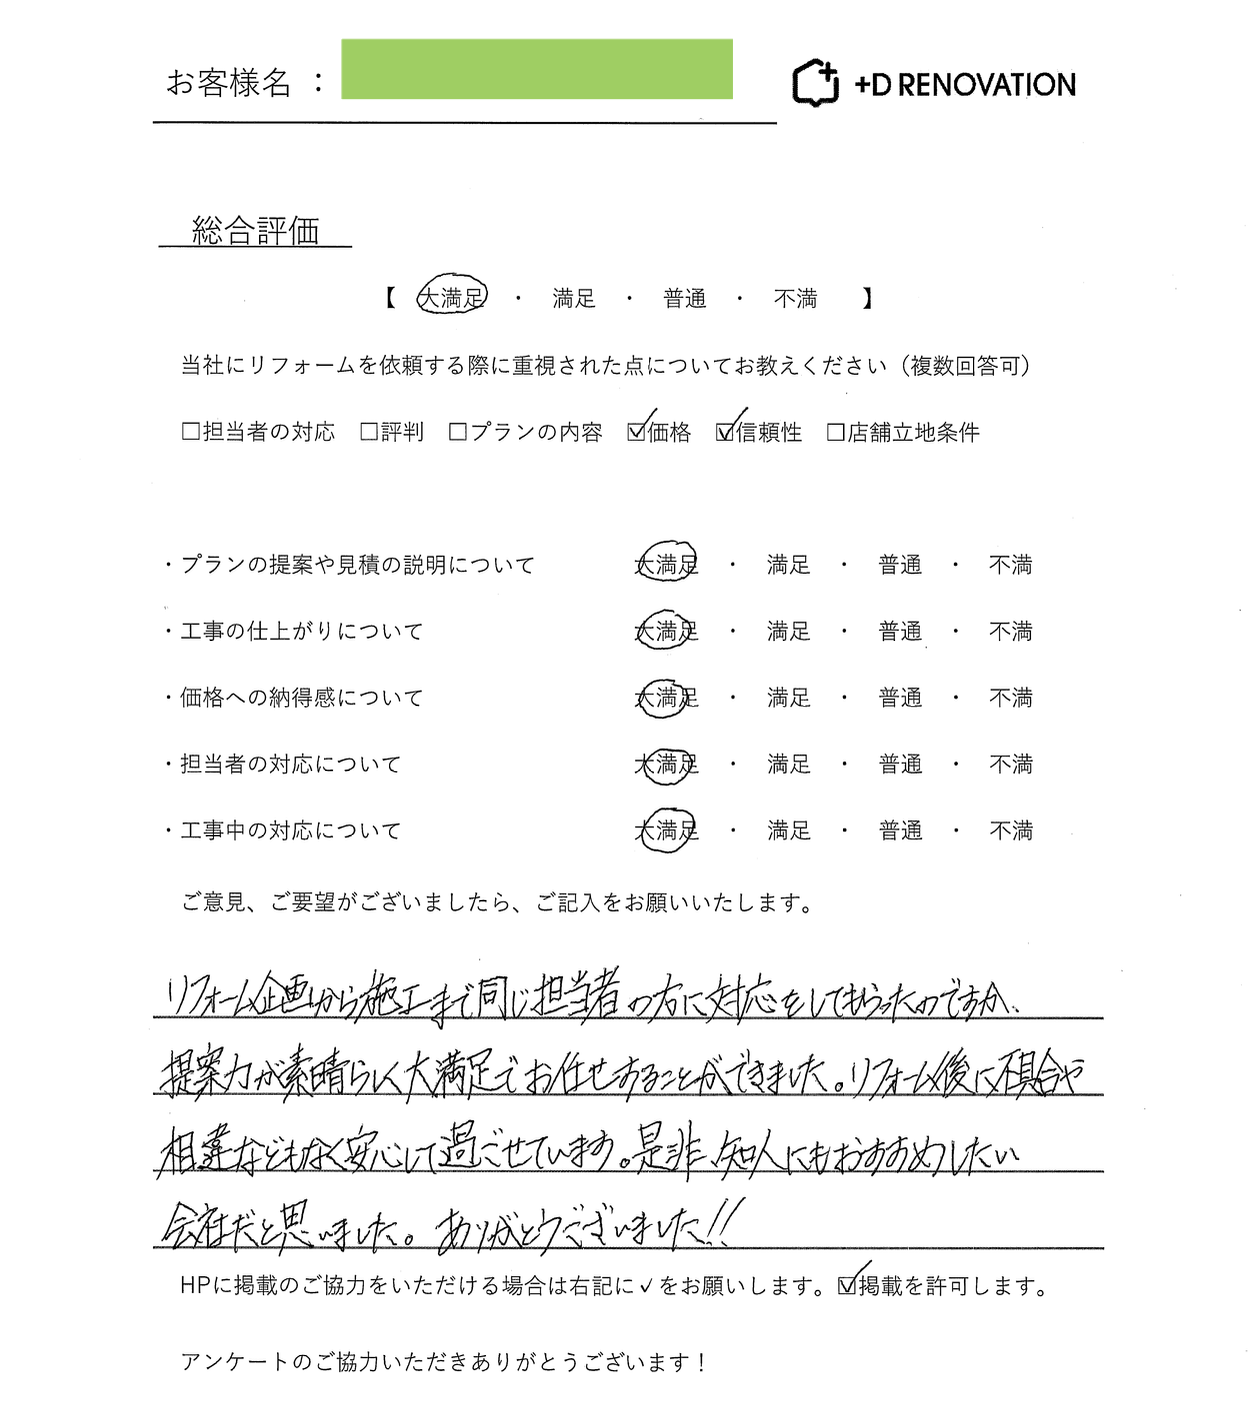 お客様名 ：
+D RENOVATION
総合評価
【 大満足 ・ 満足 ・ 普通 ・ 不満 】
当社にリフォームを依頼する際に重視された点についてお教えください（複数回答可）
□担当者の対応 □評判 □プランの内容 ☑価格 ☑信頼性 □店舗立地条件
・プランの提案や見積の説明について 大満足 ・ 満足 ・ 普通 ・ 不満
・工事の仕上がりについて 大満足 ・ 満足 ・ 普通 ・ 不満
・価格への納得感について 大満足 ・ 満足 ・ 普通 ・ 不満
・担当者の対応について 大満足 ・ 満足 ・ 普通 ・ 不満
・工事中の対応について 大満足 ・ 満足 ・ 普通 ・ 不満
ご意見、ご要望がございましたら、ご記入をお願いいたします。
リフォーム企画から施工まで同じ担当者の方に対応をしてもらったのですが、
提案力が素晴らしく大満足でお任せすることができました。リフォーム後に不具合や
相違などもなく安心して過ごせています。是非、知人にもおすすめしたい
会社だと思いました。ありがとうございました!!
HPに掲載のご協力をいただける場合は右記に✓をお願いします。☑掲載を許可します。
アンケートのご協力いただきありがとうございます！